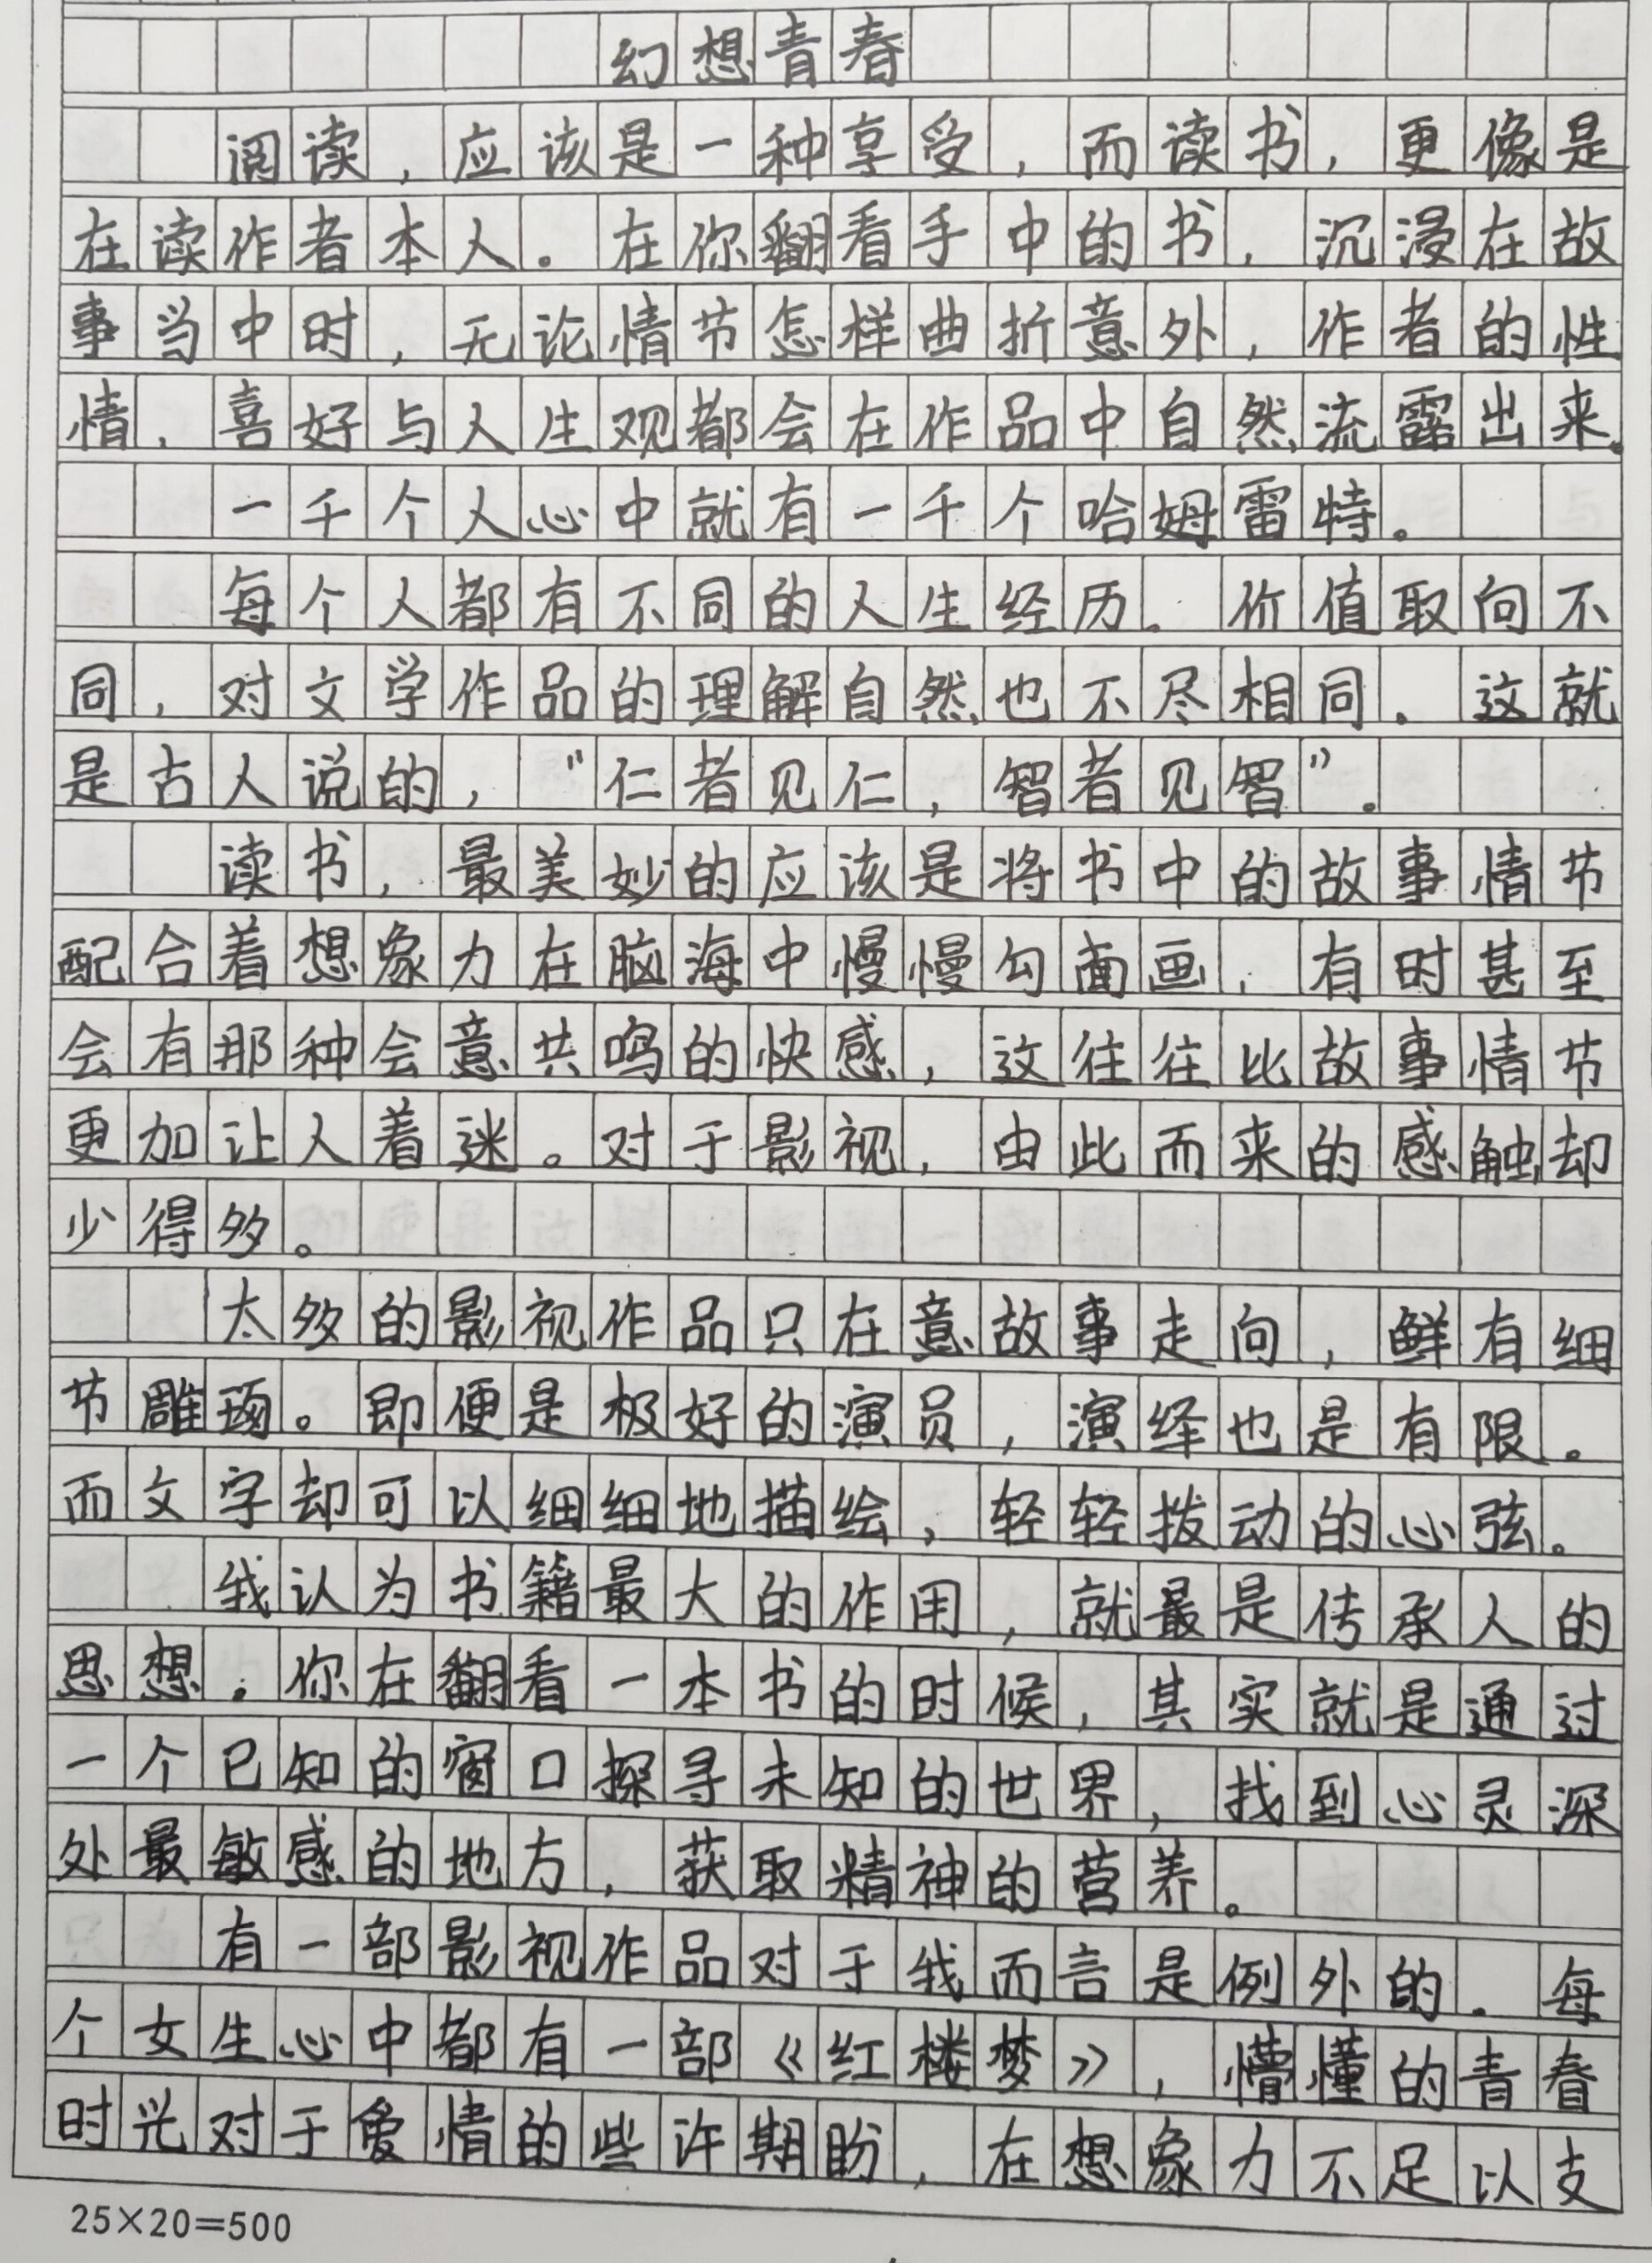 幻想青春
阅读，应该是一种享受，而读书，更像是
在读作者本人。在你翻看手中的书，沉浸在故
事当中时，无论情节怎样曲折意外，作者的性
情，喜好与人生观都会在作品中自然流露出来。
一千个人心中就有一千个哈姆雷特。
每个人都有不同的人生经历。价值取向不
同，对文学作品的理解自然也不尽相同。这就
是古人说的，“仁者见仁，智者见智”。
读书，最美妙的应该是将书中的故事情节
配合着想象力在脑海中慢慢勾画画，有时甚至
会有那种会意共鸣的快感，这往往比故事情节
更加让人着迷。对于影视，由此而来的感触却
少得多。
太多的影视作品只在意故事走向，鲜有细
节雕。即便是极好的演员，演绎也是有限。
而文字却可以细细地描绘，轻轻拨动的心弦。
我认为书籍最大的作用，就最是传承人的
思想，你在翻看一本书的时候，其实就是通过
一个已知的窗口探寻未知的世界，找到心灵深
处最敏感的地方，获取精神的营养。
有一部影视作品对于我而言是例外的。每
个女生心中都有一部《红楼梦》，懵懂的青春
时光对于爱情的些许期盼，在想象力不足以支
25×20=500